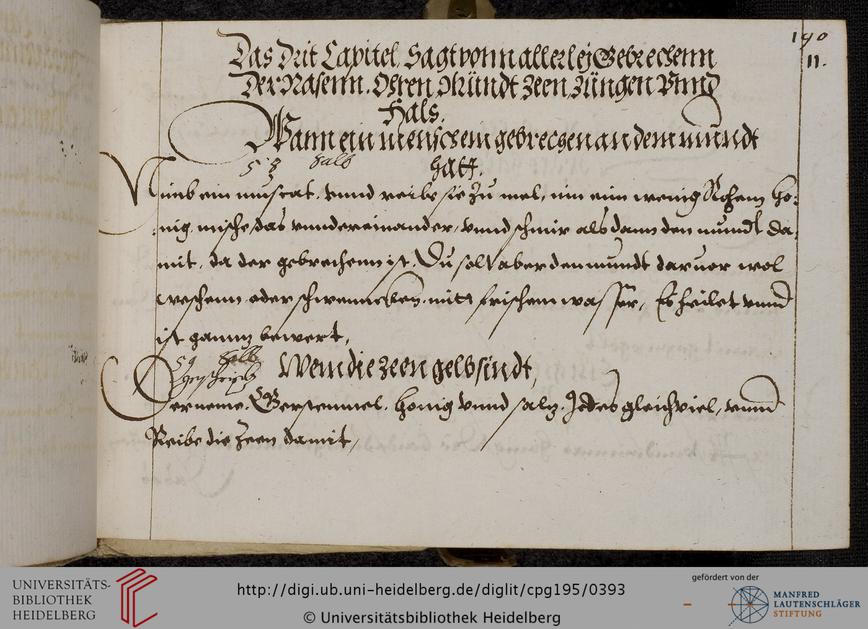 190
11.
Das Drit Capitel. Sagt vonn allerlej Gebrechenn
Der Nasenn. Ohren Mündt Zeen Züngen Vnnd
Hals.
Wann ein mensch ein gebrechen an dem mündt
hatt.
halb
Nimb ein muscat, vnnd reibe sie zu mel, nim ein wenig Rohem ho=
nig, mische das vnndereinander, vnnd schmir als dann den mundt da=
mit, da der gebrechenn ist, Du solt aber den mundt daruor wol
weschenn oder schwenncken mitt frischem wasser, Es heilet vnnd
ist gannz bewert,
59 halb
Wem die zeen gelb sindt,
Item neme, Gerstenmel, honig vnnd salz, Jedes gleich viel, vnnd
Reibe die zeen damit,
UNIVERSITÄTS-
BIBLIOTHEK
HEIDELBERG
http://digi.ub.uni-heidelberg.de/diglit/cpg195/0393
© Universitätsbibliothek Heidelberg
gefördert von der
MANFRED
LAUTENSCHLÄGER
STIFTUNG